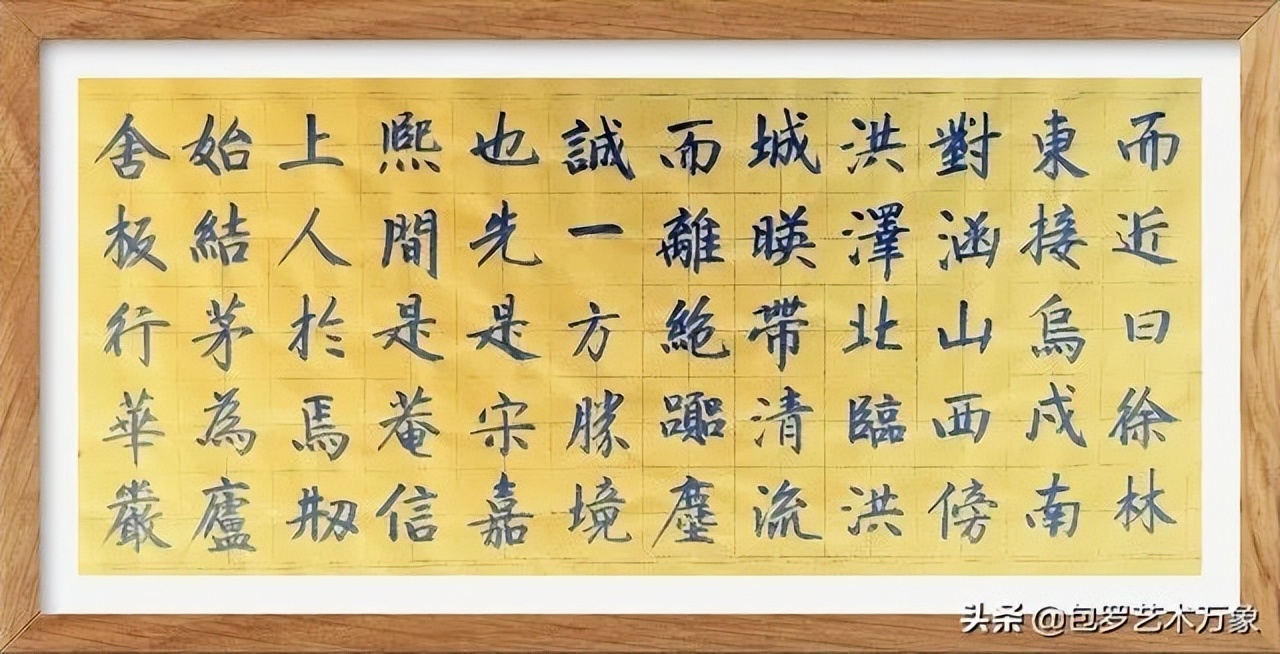 而近曰徐林
東接烏戍南
對涵山西傍
洪澤北臨洪
城暎帶清流
而離絶囂塵
誠一方勝境
也先是宋嘉
熙間是菴信
上人於焉刱
始結茅為廬
舍板行華嚴
头条 @包罗艺术万象